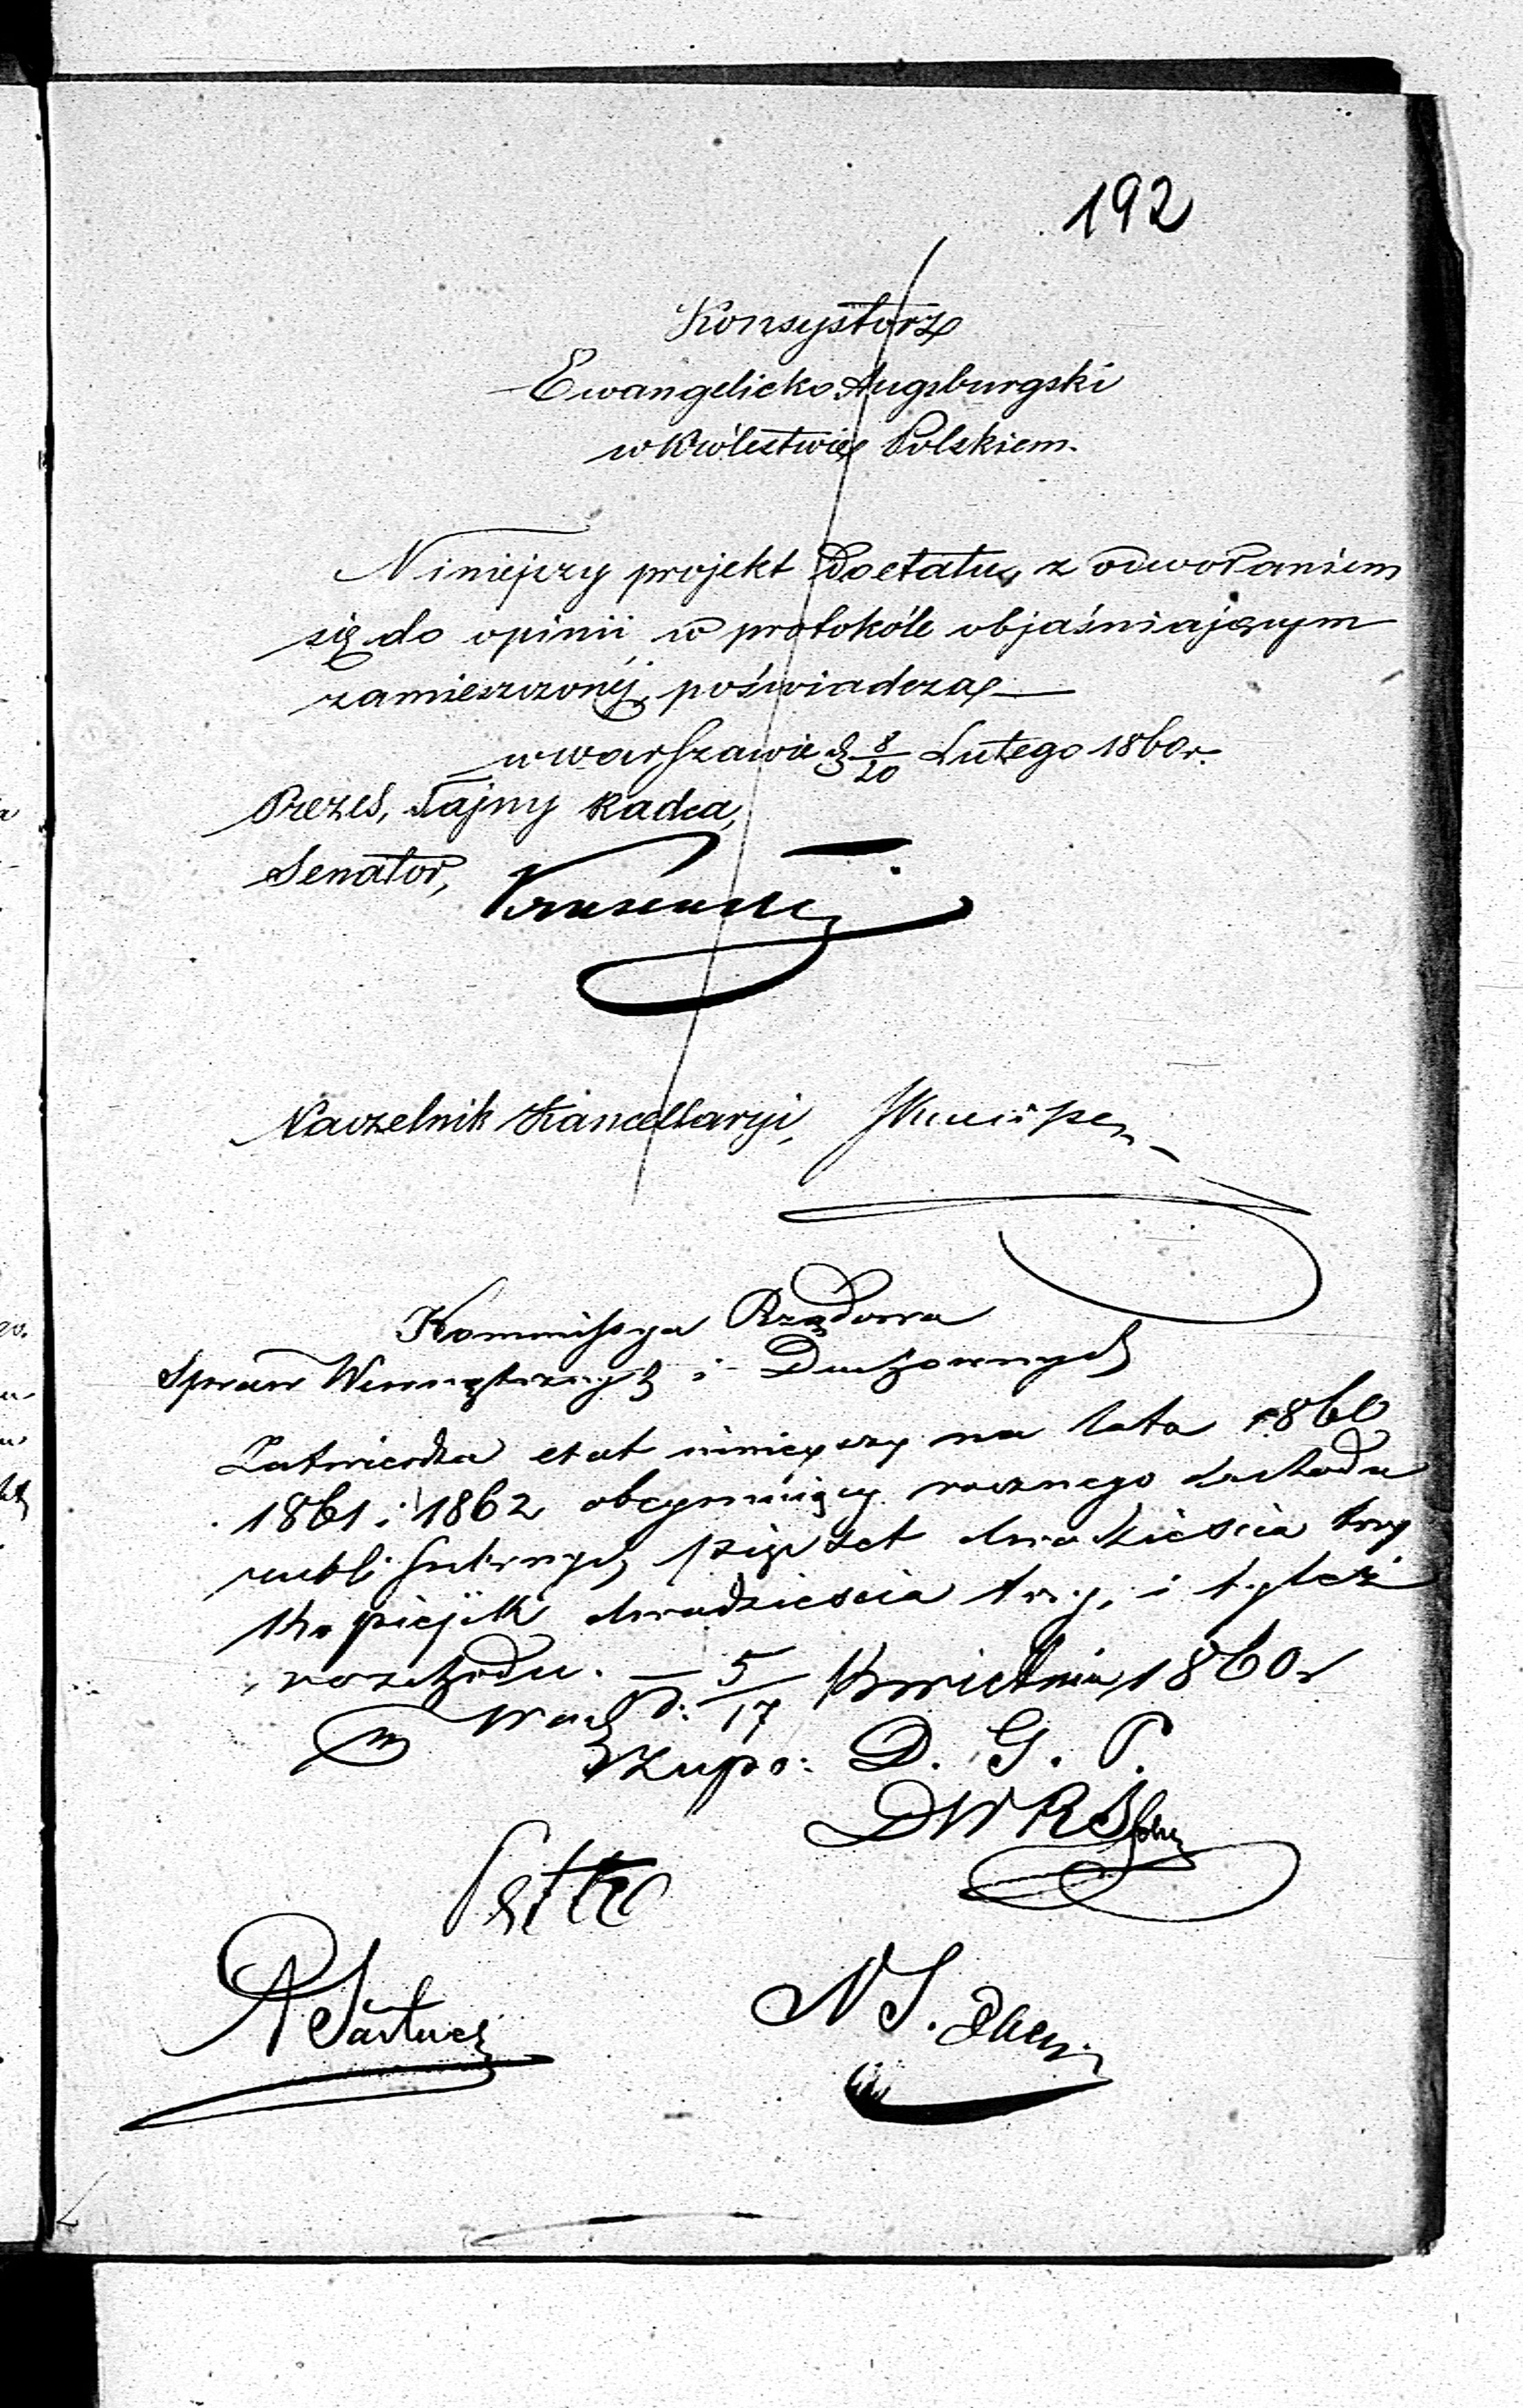 192
Konsystorz
Ewangelicko Augsburgski
w Królestwie Polskiem.
Niniejszy projekt do etatu, z odwołaniem
się do opinii w protokóle objaśniającym
zamieszczonéj, poświadcza
w Warszawie d. 8/20 Lutego 1860 r.
Prezes, Tajny Radca,
Senator,
Naczelnik Kancellaryi,
Kommissya Rządowa
Spraw Wewnętrznych i Duchownych
Zatwierdza etat niniejszy na lata 1860
1861 i 1862 obejmujący rocznego dochodu
rubli srebrnych pięćset dwadzieścia trzy
kopiejek dwadzieścia trzy, i tyleż
rozchodu. —
w d. 5/17 Kwietnia 1860 r
z upo: D. G. P.
N S.